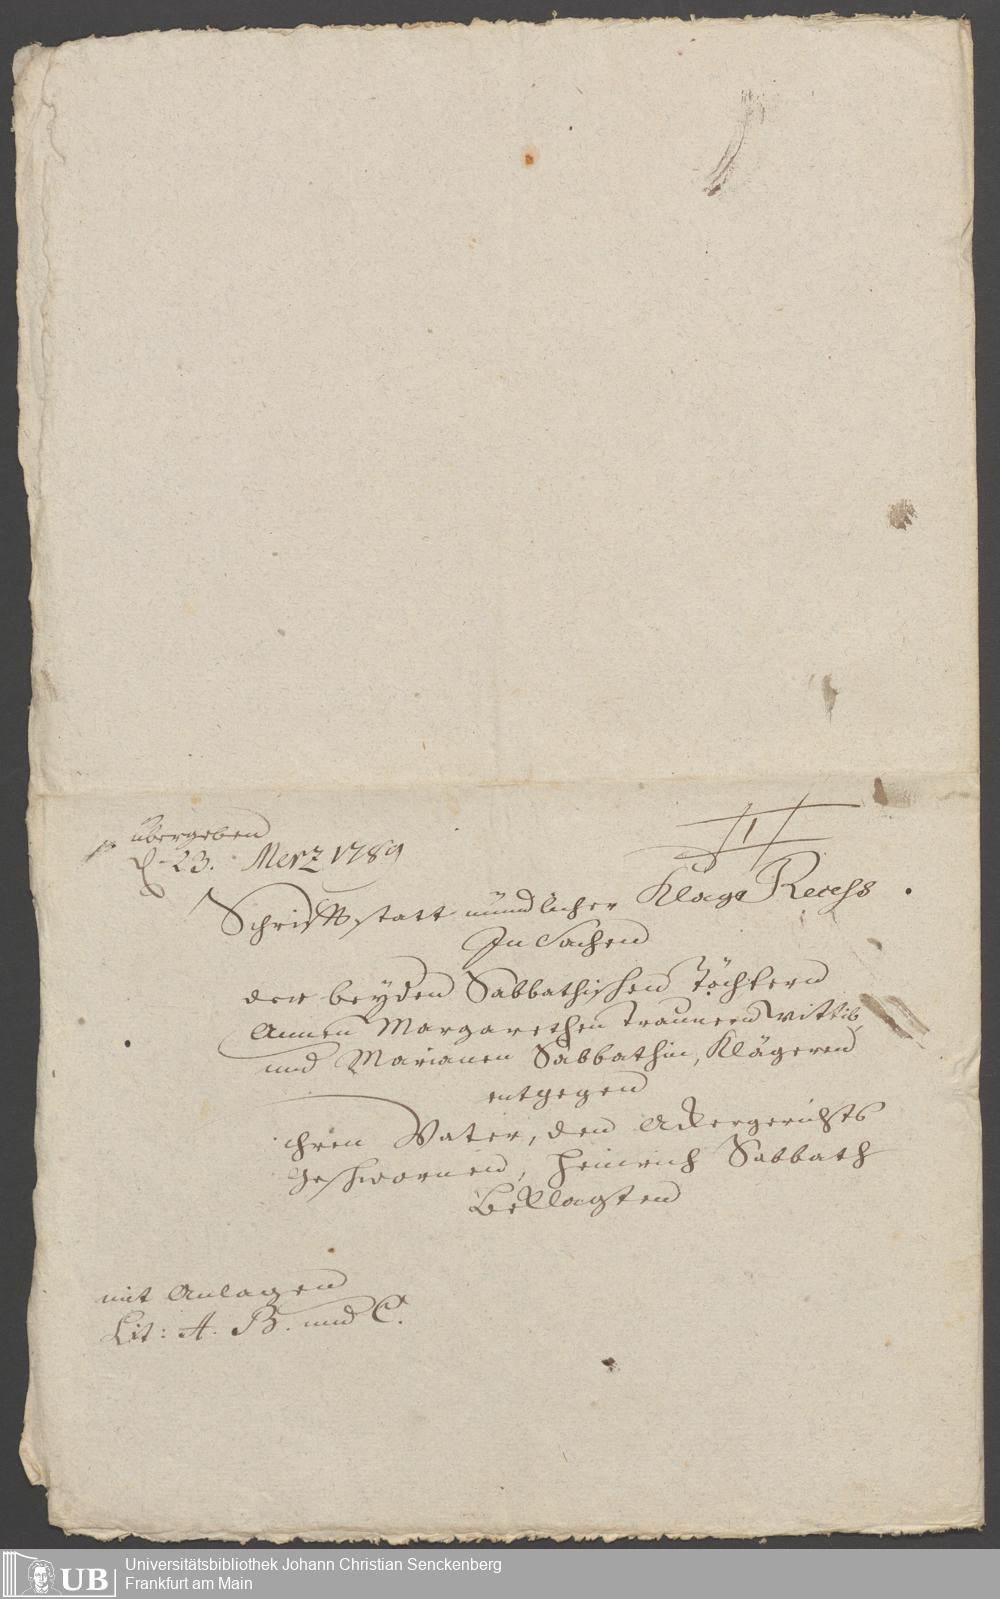 übergeben
d. 23. Merz 1789
1
Schrifft statt mündlicher Klage Recess.
In Sachen
der beyden Sabbathischen Töchtern
Annen Margarethen Wittib,
und Marianen Sabbathin, Klägeren
entgegen
ihren Vater, den Ackergerichts
geschwornen, Heinrich Sabbath
Beklagten
mit Anlagen
Lit: A. B. und C.
UB
Universitätsbibliothek Johann Christian Senckenberg
Frankfurt am Main